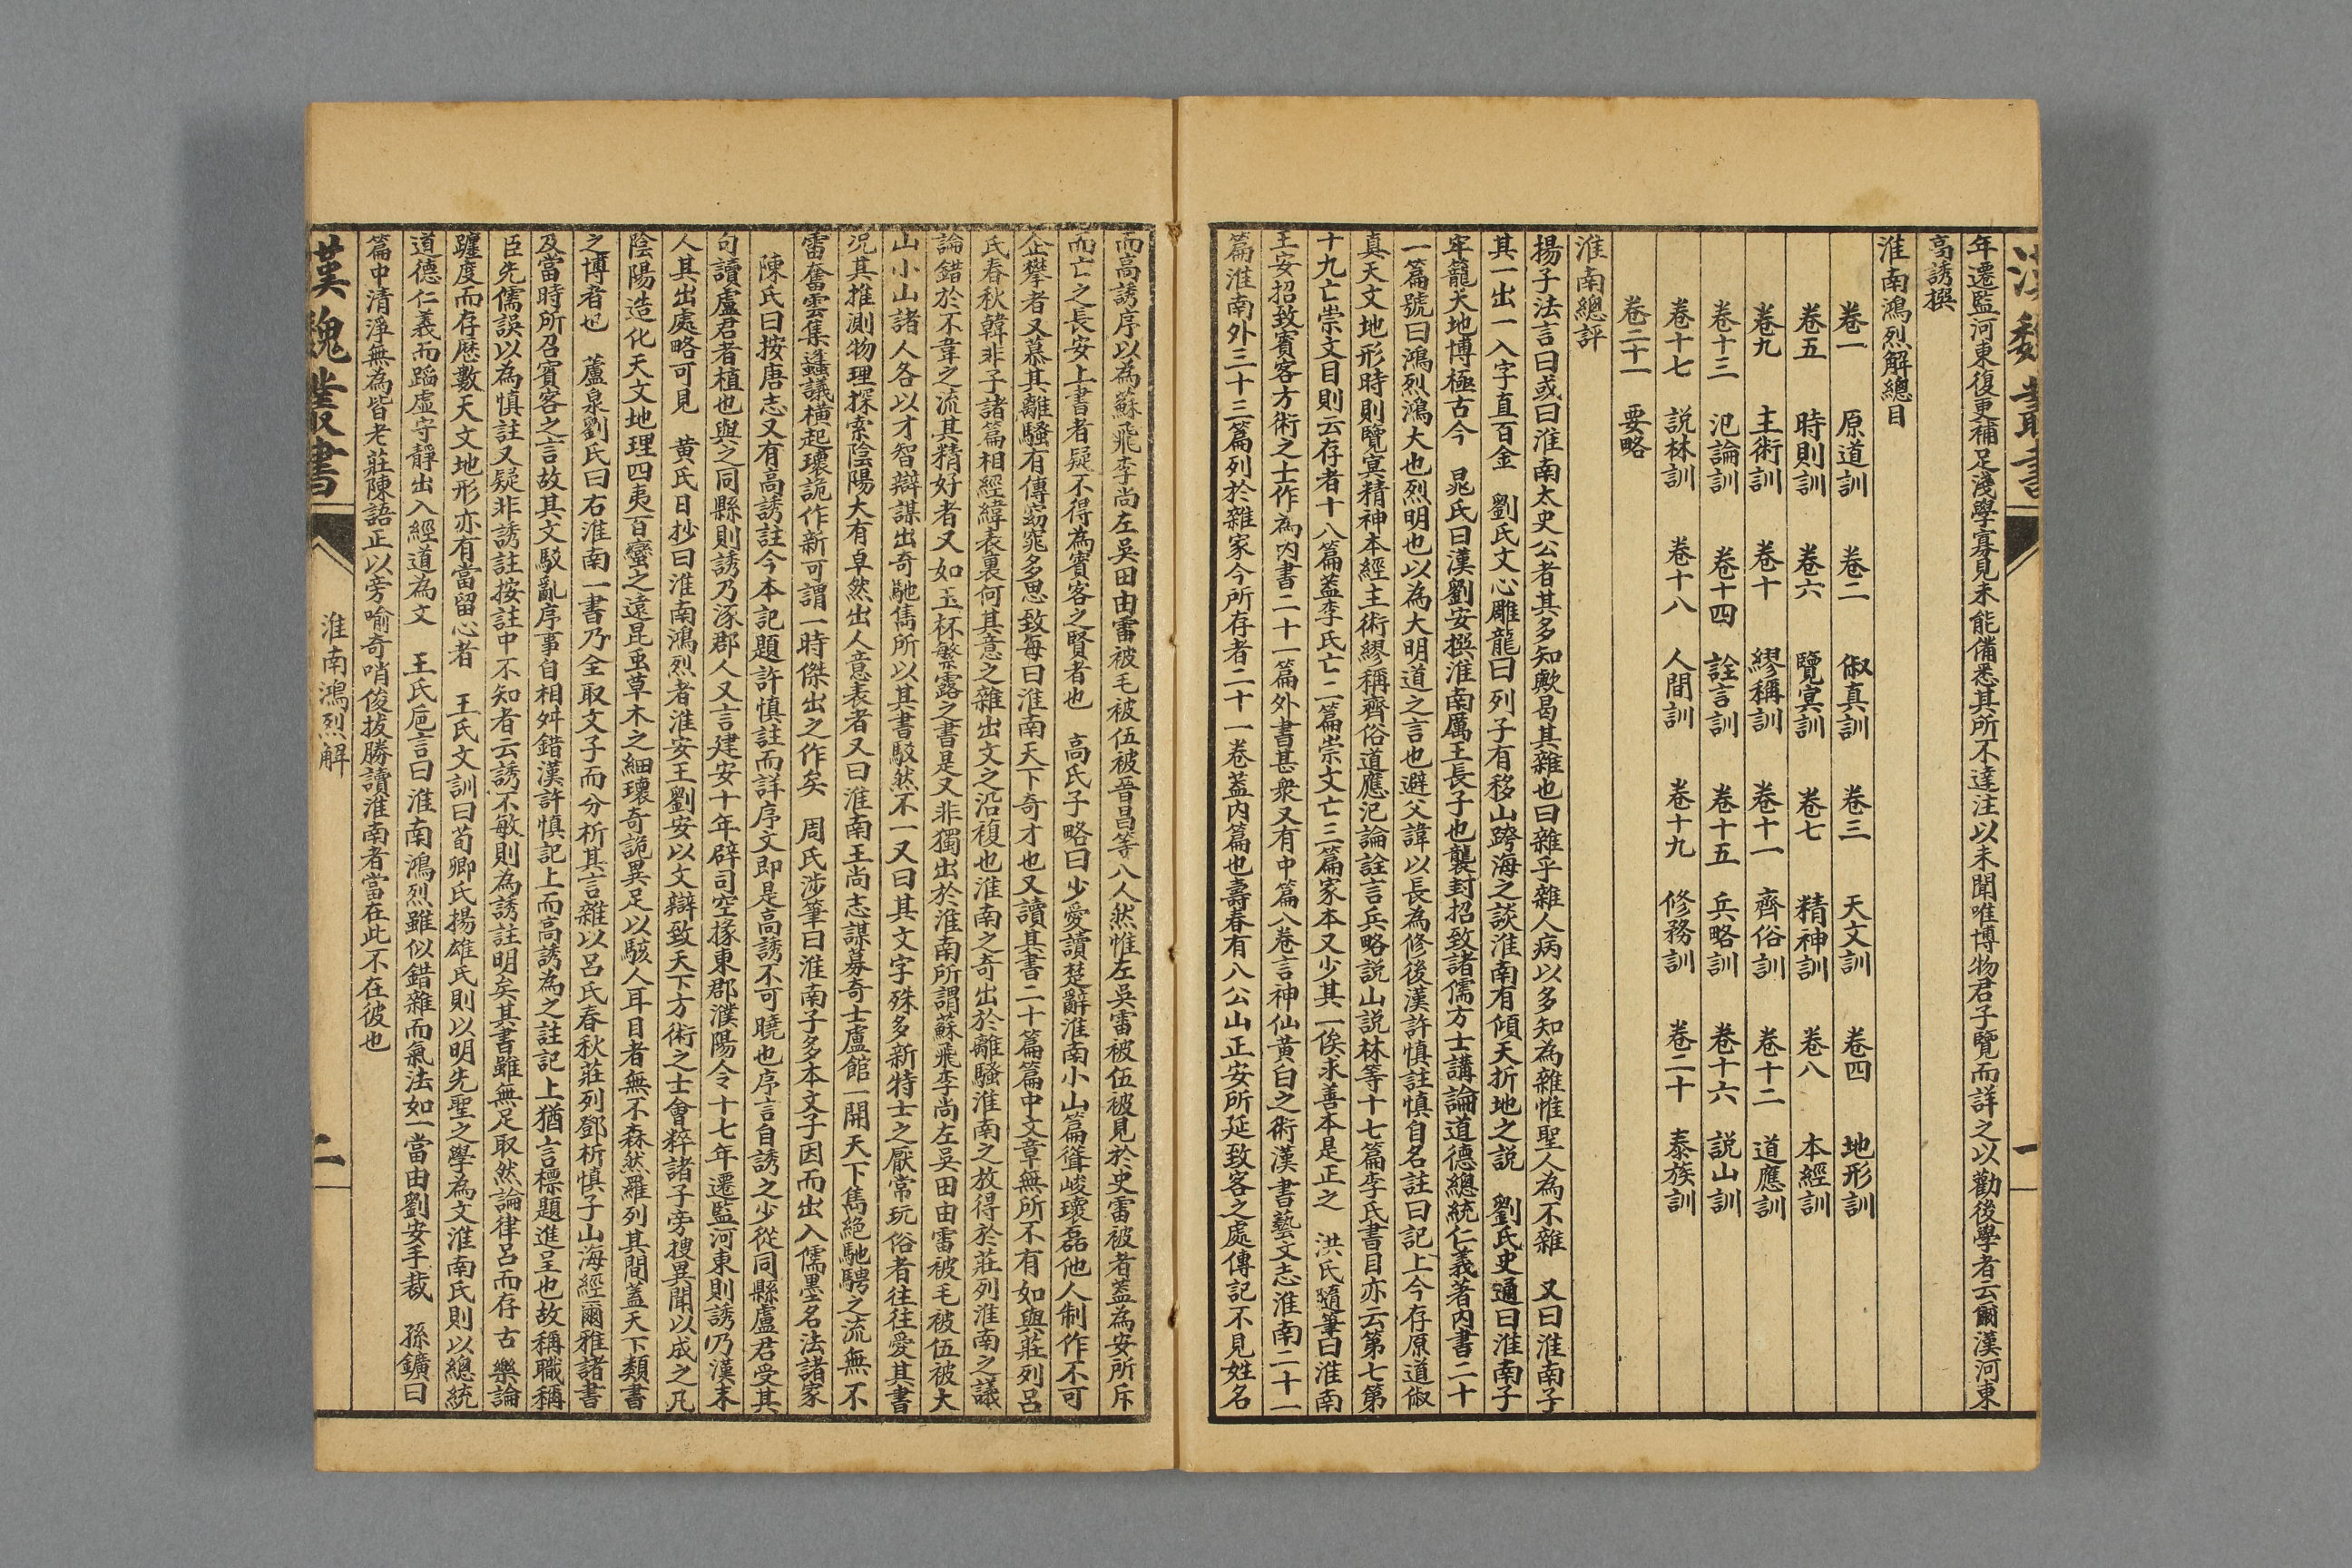 漢魏叢書
一
年遷監河東復更補足淺學寡見未能備悉其所不達注以未聞唯博物君子覽而詳之以勸後學者云爾漢河東
高誘撰
淮南鴻烈解總目
卷一 原道訓 卷二 俶真訓 卷三 天文訓 卷四 地形訓
卷五 時則訓 卷六 覽冥訓 卷七 精神訓 卷八 本經訓
卷九 主術訓 卷十 繆稱訓 卷十一 齊俗訓 卷十二 道應訓
卷十三 氾論訓 卷十四 詮言訓 卷十五 兵略訓 卷十六 說山訓
卷十七 說林訓 卷十八 人間訓 卷十九 修務訓 卷二十 泰族訓
卷二十一 要略
淮南總評
揚子法言曰或曰淮南太史公者其多知歟曷其雜也曰雜乎雜人病以多知為雜惟聖人為不雜 又曰淮南子
其一出一入字直百金 劉氏文心雕龍曰列子有移山跨海之談淮南有傾天折地之說 劉氏史通曰淮南子
牢籠天地博極古今 晁氏曰漢劉安撰淮南厲王長子也襲封招致諸儒方士講論道德總統仁義著內書二十
一篇號曰鴻烈鴻大也烈明也以為大明道之言也避父諱以長為修後漢許慎註慎自名註曰記上今存原道俶
真天文地形時則覽冥精神本經主術繆稱齊俗道應氾論詮言兵略說山說林等十七篇李氏書目亦云第七第
十九亡崇文目則云存者十八篇蓋李氏亡二篇崇文亡三篇家本又少其一俟求善本是正之 洪氏隨筆曰淮南
王安招致賓客方術之士作為內書二十一篇外書甚衆又有中篇八卷言神仙黃白之術漢書藝文志淮南二十一
篇淮南外三十三篇列於雜家今所存者二十一卷蓋內篇也壽春有八公山正安所延致客之處傳記不見姓名
而高誘序以為蘇飛李尚左吳田由雷被毛被伍被晉昌等八人然惟左吳雷被伍被見於史雷被者蓋為安所斥
而亡之長安上書者疑不得為賓客之賢者也 高氏子略曰少愛讀楚辭淮南小山篇聳峻瓌磊他人制作不可
企攀者又慕其離騷有傳窈窕多思致每曰淮南天下奇才也又讀其書二十篇篇中文章無所不有如與莊列呂
氏春秋韓非子諸篇相經緯表裏何其意之雜出文之沿複也淮南之奇出於離騷淮南之放得於莊列淮南之議
論錯於不韋之流其精好者又如玉杯繁露之書是又非獨出於淮南所謂蘇飛李尚左吳田由雷被毛被伍被大
山小山諸人各以才智辯謀出奇馳雋所以其書駁然不一又曰其文字殊多新特士之厭常玩俗者往往愛其書
況其推測物理探索陰陽大有卓然出人意表者又曰淮南王尚志謀募奇士廬館一開天下雋絕馳騁之流無不
雷奮雲集蠭議橫起瓌詭作新可謂一時傑出之作矣 周氏涉筆曰淮南子多本文子因而出入儒墨名法諸家
陳氏曰按唐志又有高誘註今本記題許慎註而詳序文即是高誘不可曉也序言自誘之少從同縣盧君受其
句讀盧君者植也與之同縣則誘乃涿郡人又言建安十年辟司空掾東郡濮陽令十七年遷監河東則誘乃漢末
人其出處略可見 黃氏日抄曰淮南鴻烈者淮安王劉安以文辯致天下方術之士會粹諸子旁搜異聞以成之凡
陰陽造化天文地理四夷百蠻之遠昆虫草木之細瓌奇詭異足以駭人耳目者無不森然羅列其間蓋天下類書
之博者也 蘆泉劉氏曰右淮南一書乃全取文子而分析其言雜以呂氏春秋莊列鄧析慎子山海經爾雅諸書
及當時所召賓客之言故其文駁亂序事自相舛錯漢許慎記上而高誘為之註記上猶言標題進呈也故稱職稱
臣先儒誤以為慎註又疑非誘註按註中不知者云誘不敏則為誘註明矣其書雖無足取然論律呂而存古樂論
躔度而存歷數天文地形亦有當留心者 王氏文訓曰荀卿氏揚雄氏則以明先聖之學為文淮南氏則以總統
道德仁義而蹈虛守靜出入經道為文 王氏巵言曰淮南鴻烈雖似錯雜而氣法如一當由劉安手裁 孫鑛曰
篇中清淨無為皆老莊陳語正以旁喻奇哨俊拔勝讀淮南者當在此不在彼也
漢魏叢書
淮南鴻烈解
二